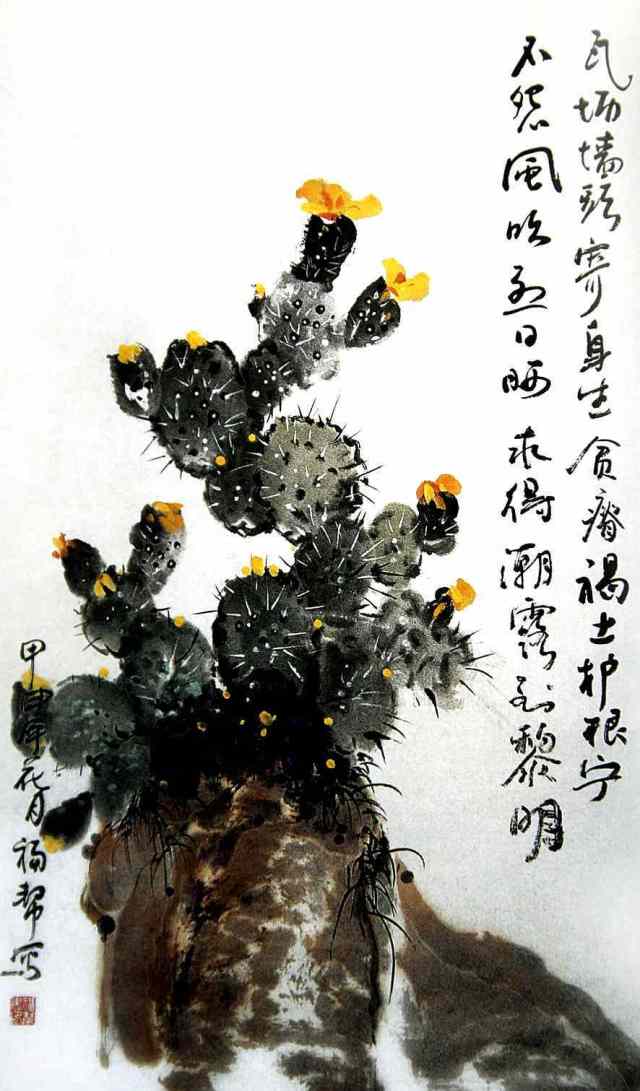 瓦墙头寄身生贫瘠褐土护根宁
不怨風吹烈日晒求得潮露到黎明
甲年花月福帮写